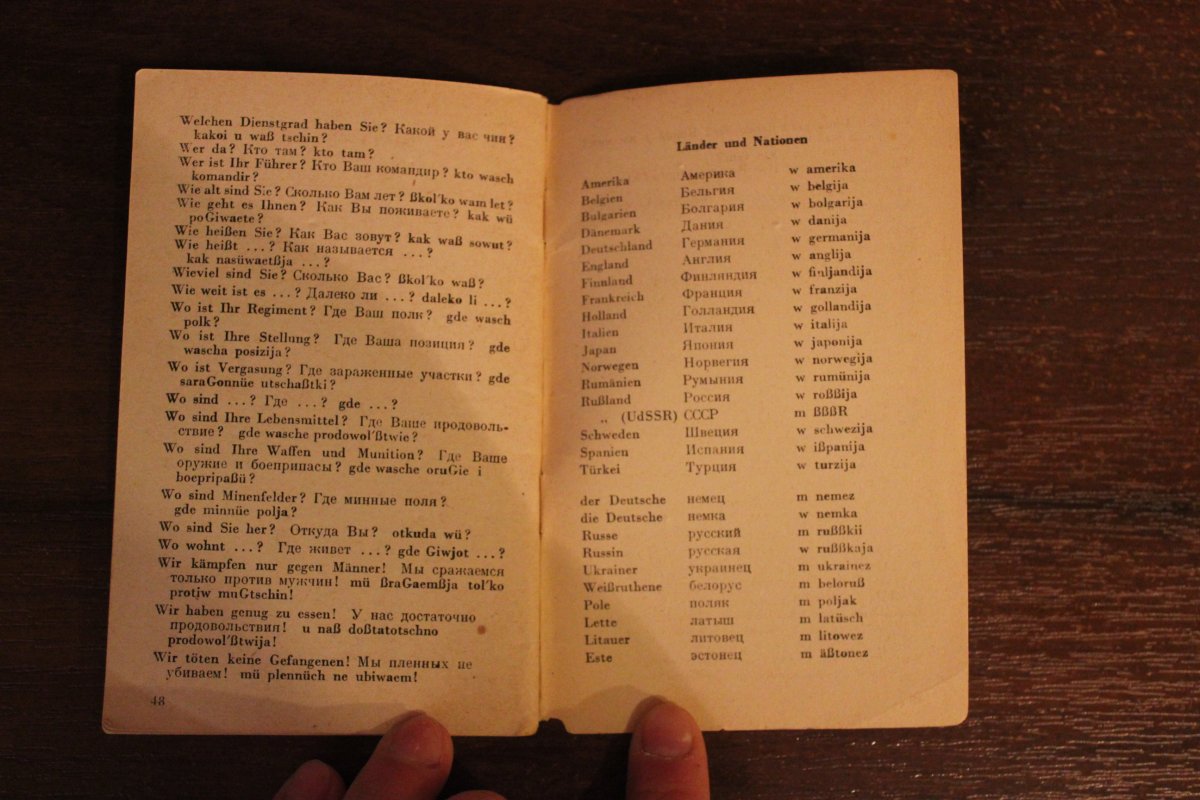 Welchen Dienstgrad haben Sie? Какой у вас чин?
kakoi u waß tschin?
Wer da? Кто там? kto tam?
Wer ist Ihr Führer? Кто Ваш командир? kto wasch
komandir?
Wie alt sind Sie? Сколько Вам лет? ßkol'ko wam let?
Wie geht es Ihnen? Как Вы поживаете? kak wü
poGiwaete?
Wie heißen Sie? Как Вас зовут? kak waß sowut?
Wie heißt ...? Как называется ...?
kak nasüwaetßja ...?
Wieviel sind Sie? Сколько Вас? ßkol'ko waß?
Wie weit ist es ...? Далеко ли ...? daleko li ...?
Wo ist Ihr Regiment? Где Ваш полк? gde wasch
polk?
Wo ist Ihre Stellung? Где Ваша позиция? gde
wascha posizija?
Wo ist Vergasung? Где зараженные участки? gde
saraGonnüe utschaßtki?
Wo sind ...? Где ...? gde ...?
Wo sind Ihre Lebensmittel? Где Ваше продоволь-
ствие? gde wasche prodowol'ßtwie?
Wo sind Ihre Waffen und Munition? Где Ваше
оружие и боеприпасы? gde wasche oruGie i
boepripaßü?
Wo sind Minenfelder? Где минные поля?
gde minnüe polja?
Wo sind Sie her? Откуда Вы? otkuda wü?
Wo wohnt ...? Где живет ...? gde Giwjot ...?
Wir kämpfen nur gegen Männer! Мы сражаемся
только против мужчин! mü ßraGaemßja tol'ko
protiw muGtschin!
Wir haben genug zu essen! У нас достаточно
продовольствия! u naß doßtatotschno
prodowol'ßtwija!
Wir töten keine Gefangenen! Мы пленных не
убиваем! mü plennüch ne ubiwaem!
48
Länder und Nationen
Amerika Америка w amerika
Belgien Бельгия w belgija
Bulgarien Болгария w bolgarija
Dänemark Дания w danija
Deutschland Германия w germanija
England Англия w anglija
Finnland Финляндия w finljandija
Frankreich Франция w franzija
Holland Голландия w gollandija
Italien Италия w italija
Japan Япония w japonija
Norwegen Норвегия w norwegija
Rumänien Румыния w rumünija
Rußland Россия w roßßija
„ (UdSSR) СССР m ßßßR
Schweden Швеция w schwezija
Spanien Испания w ißpanija
Türkei Турция w turzija
der Deutsche немец m nemez
die Deutsche немка w nemka
Russe русский m rußßkii
Russin русская w rußßkaja
Ukrainer украинец m ukrainez
Weißruthene белорус m beloruß
Pole поляк m poljak
Lette латыш m latüsch
Litauer литовец m litowez
Este эстонец m äßtonez